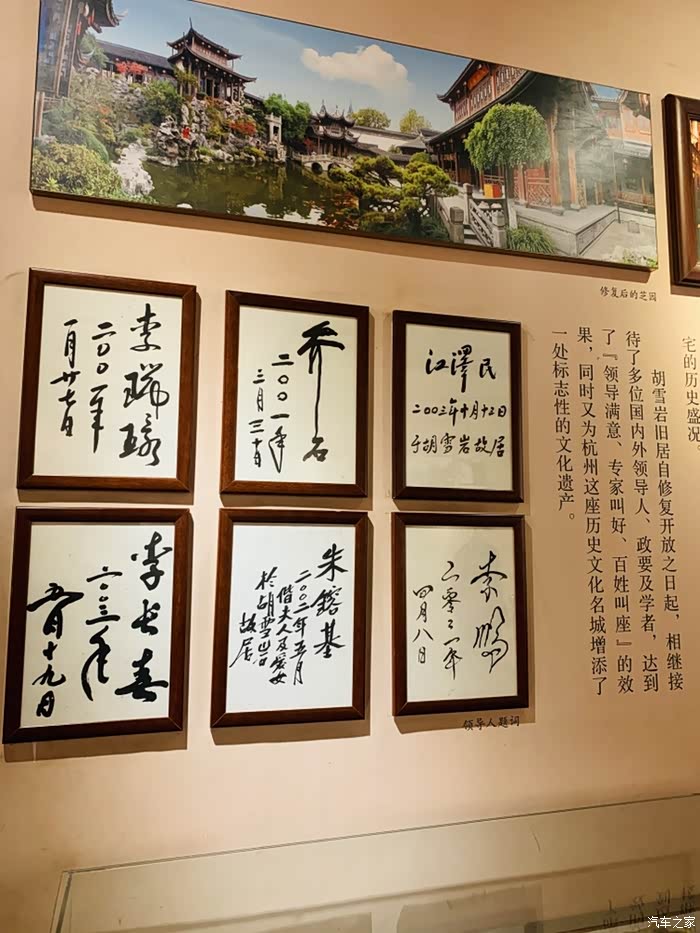 修复后的芝园
宅的历史盛况。
胡雪岩旧居自修复开放之日起，相继接
待了多位国内外领导人、政要及学者，达到
了『领导满意、专家叫好、百姓叫座』的效
果，同时又为杭州这座历史文化名城增添了
一处标志性的文化遗产。
江泽民
二〇〇三年十月十二日
于胡雪岩故居
乔石
二〇〇一年
三月三十日
李瑞环
二〇〇一年
一月廿七日
李鹏
二零零一年
四月八日
朱镕基
二〇〇二年五月
偕夫人及爱女
於胡雪岩
故居
李长春
二〇〇三年
五月十九日
领导人题词
汽车之家